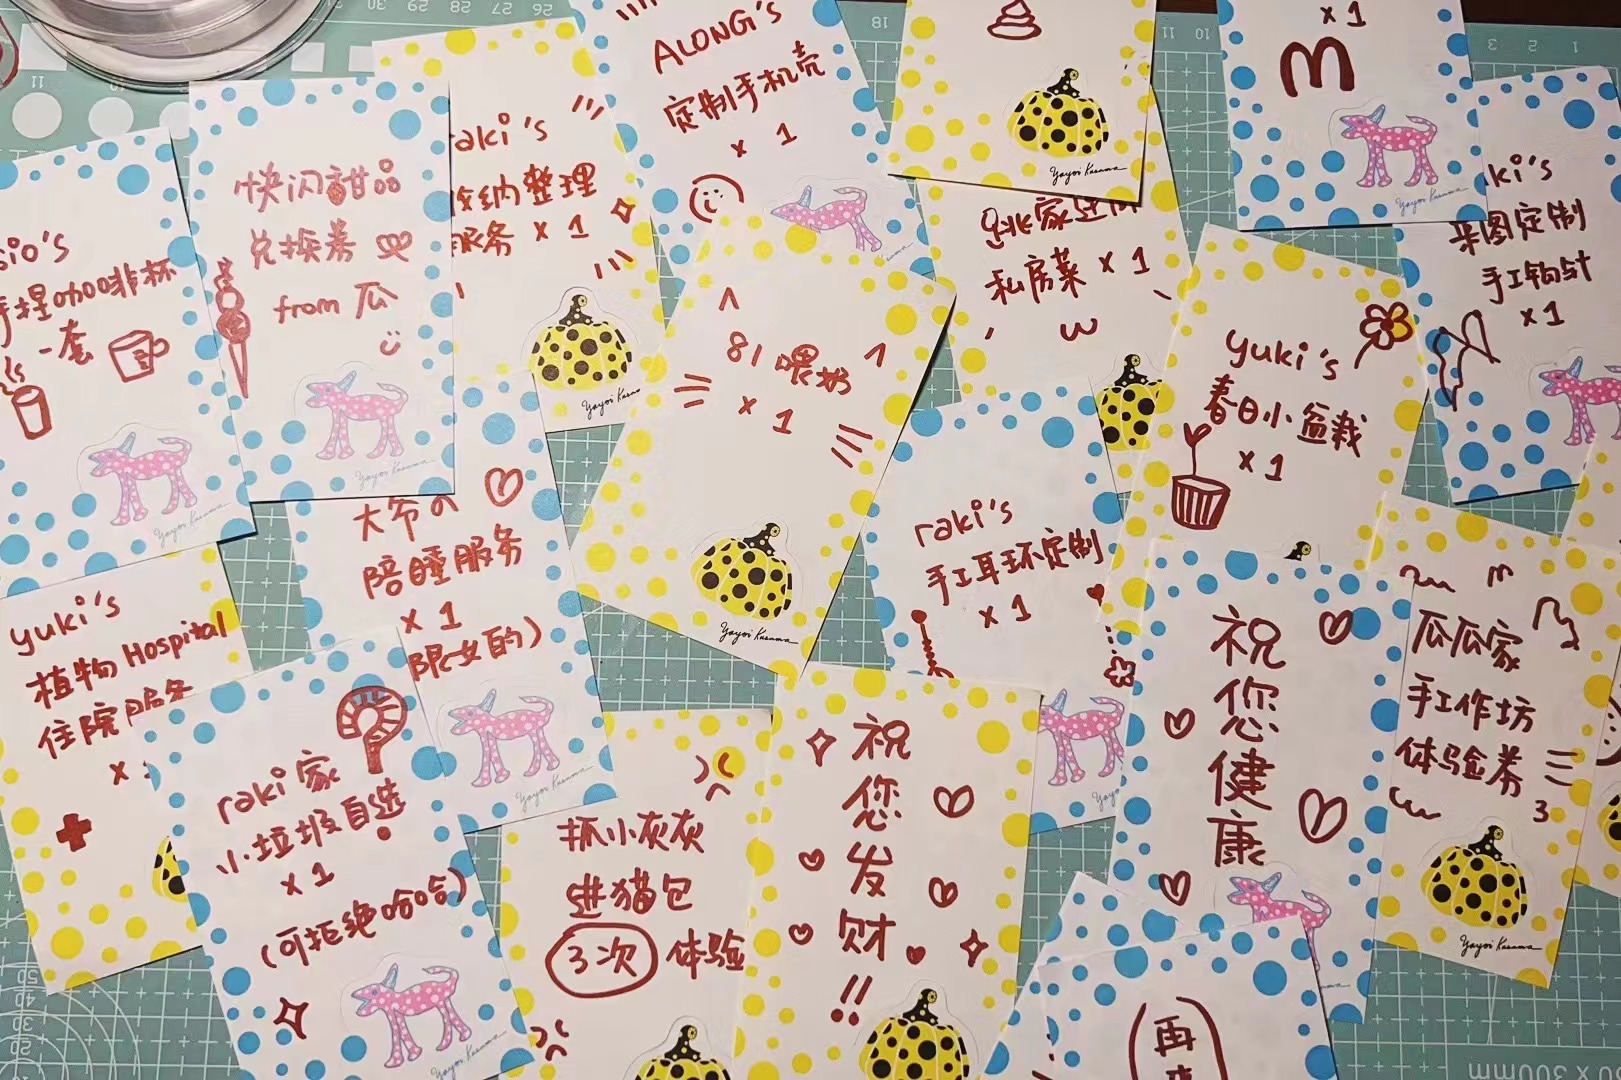 快闪甜品
兑换券
from 瓜
手捏咖啡杯
一套
raki's
收纳整理
服务 x 1
ALONG's
定制手机壳
x 1
Yayoi Kusama
x 1
m
Yayoi Kusama
来图定制
手工钩针
x 1
私房菜 x 1
81 喂奶
x 1
Yayoi Kusama
yuki's
春日小盆栽
x 1
大爷の
陪睡服务
x 1
限女的)
Yayoi Kusama
raki's
手工耳环定制
x 1
yuki's
植物 Hospital
住院服务
x
raki 家
小垃圾自选
x 1
(可拒绝哈哈)
抓小灰灰
进猫包
3次 体验
祝
您
发
财
!!
祝
您
健
康
瓜瓜家
手工作坊
体验券
Yayoi Kusama
再
Yayoi Kusama
Yayoi Kusama